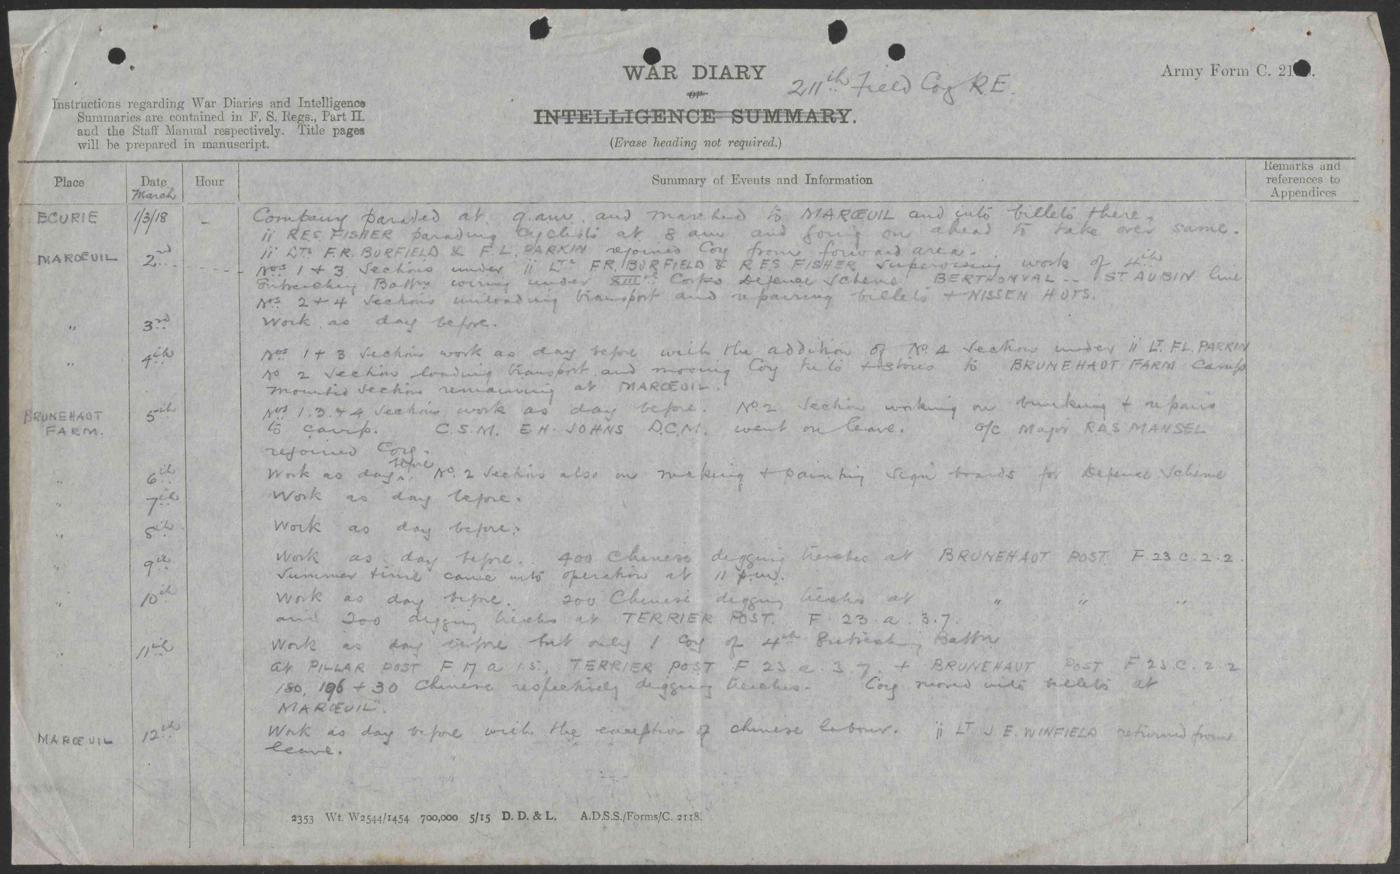 WAR DIARY
or
INTELLIGENCE SUMMARY.
(Erase heading not required.)
211th Field Coy R.E.
Army Form C. 21
Instructions regarding War Diaries and Intelligence
Summaries are contained in F. S. Regs., Part II.
and the Staff Manual respectively. Title pages
will be prepared in manuscript.
Place Date Hour Summary of Events and Information Remarks and references to Appendices
March
ECURIE 1/3/18 - Company paraded at 9 am and marched to MARŒUIL and into billets there.
ii RES FISHER parading cyclists at 8 am and going on ahead to take over same.
ii Lts F.R. BURFIELD & F.L. PARKIN rejoined Coy from forward area.
MARŒUIL 2nd Nos 1 + 3 Sections under ii Lts F.R. BURFIELD & RES FISHER supervising work of 4th
Entrenching Battn wiring under XIII Corps Defence Scheme BERTHONVAL - ST AUBIN line
Nos 2 + 4 Sections unloading transport and repairing billets + NISSEN HUTS.
" 3rd Work as day before.
" 4th Nos 1 + 3 Sections work as day before with the addition of No 4 Section under ii Lt. F.L. PARKIN
No 2 Section loading transport and moving Coy + stores to BRUNEHAUT FARM Camp
mounted section remaining at MARŒUIL.
BRUNEHAUT FARM. 5th Nos 1.3. & 4 Sections work as day before. No 2 Section working on + repairs
to camp. C.S.M. E.H. JOHNS D.C.M. went on leave. O/C Major RAS MANSEL
rejoined Coy.
" 6th Work as day before. No. 2 Section also on making + painting sign boards for Defence Scheme
" 7th Work as day before.
" 8th Work as day before.
" 9th Work as day before. 400 Chinese digging trenches at BRUNEHAUT POST F 23 c. 2.2.
Summer time came into operation at 11 p.m.
" 10th Work as day before. 200 Chinese digging trenches at " " "
and 200 digging trenches at TERRIER POST. F. 23. a. 3.7.
" 11th Work as day before but only 1 Coy of 4th Entrenching Battn
at PILLAR POST F 17 a 1.5., TERRIER POST F 23. a. 3.7. + BRUNEHAUT POST F 23. C. 2.2
180, 196 + 30 Chinese respectively digging trenches. Coy moved into billets at
MARŒUIL.
MARŒUIL 12th Work as day before with the exception of chinese labour. ii LT J.E. WINFIELD returned from
leave.
2353 Wt. W2544/1454 700,000 5/15 D. D. & L. A.D.S.S./Forms/C. 2118.